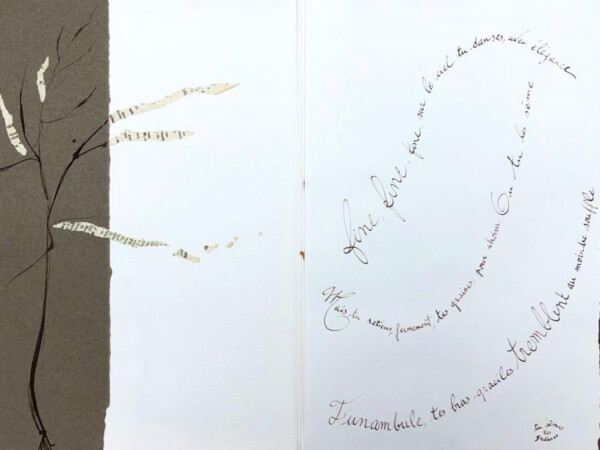 fine, fine, fine sur le ciel tu danses, avec élégance
Mais tu retiens, fermement, tes graines pour Où tu les sème
Funambule, tes bras graciles tremblent au moindre souffle